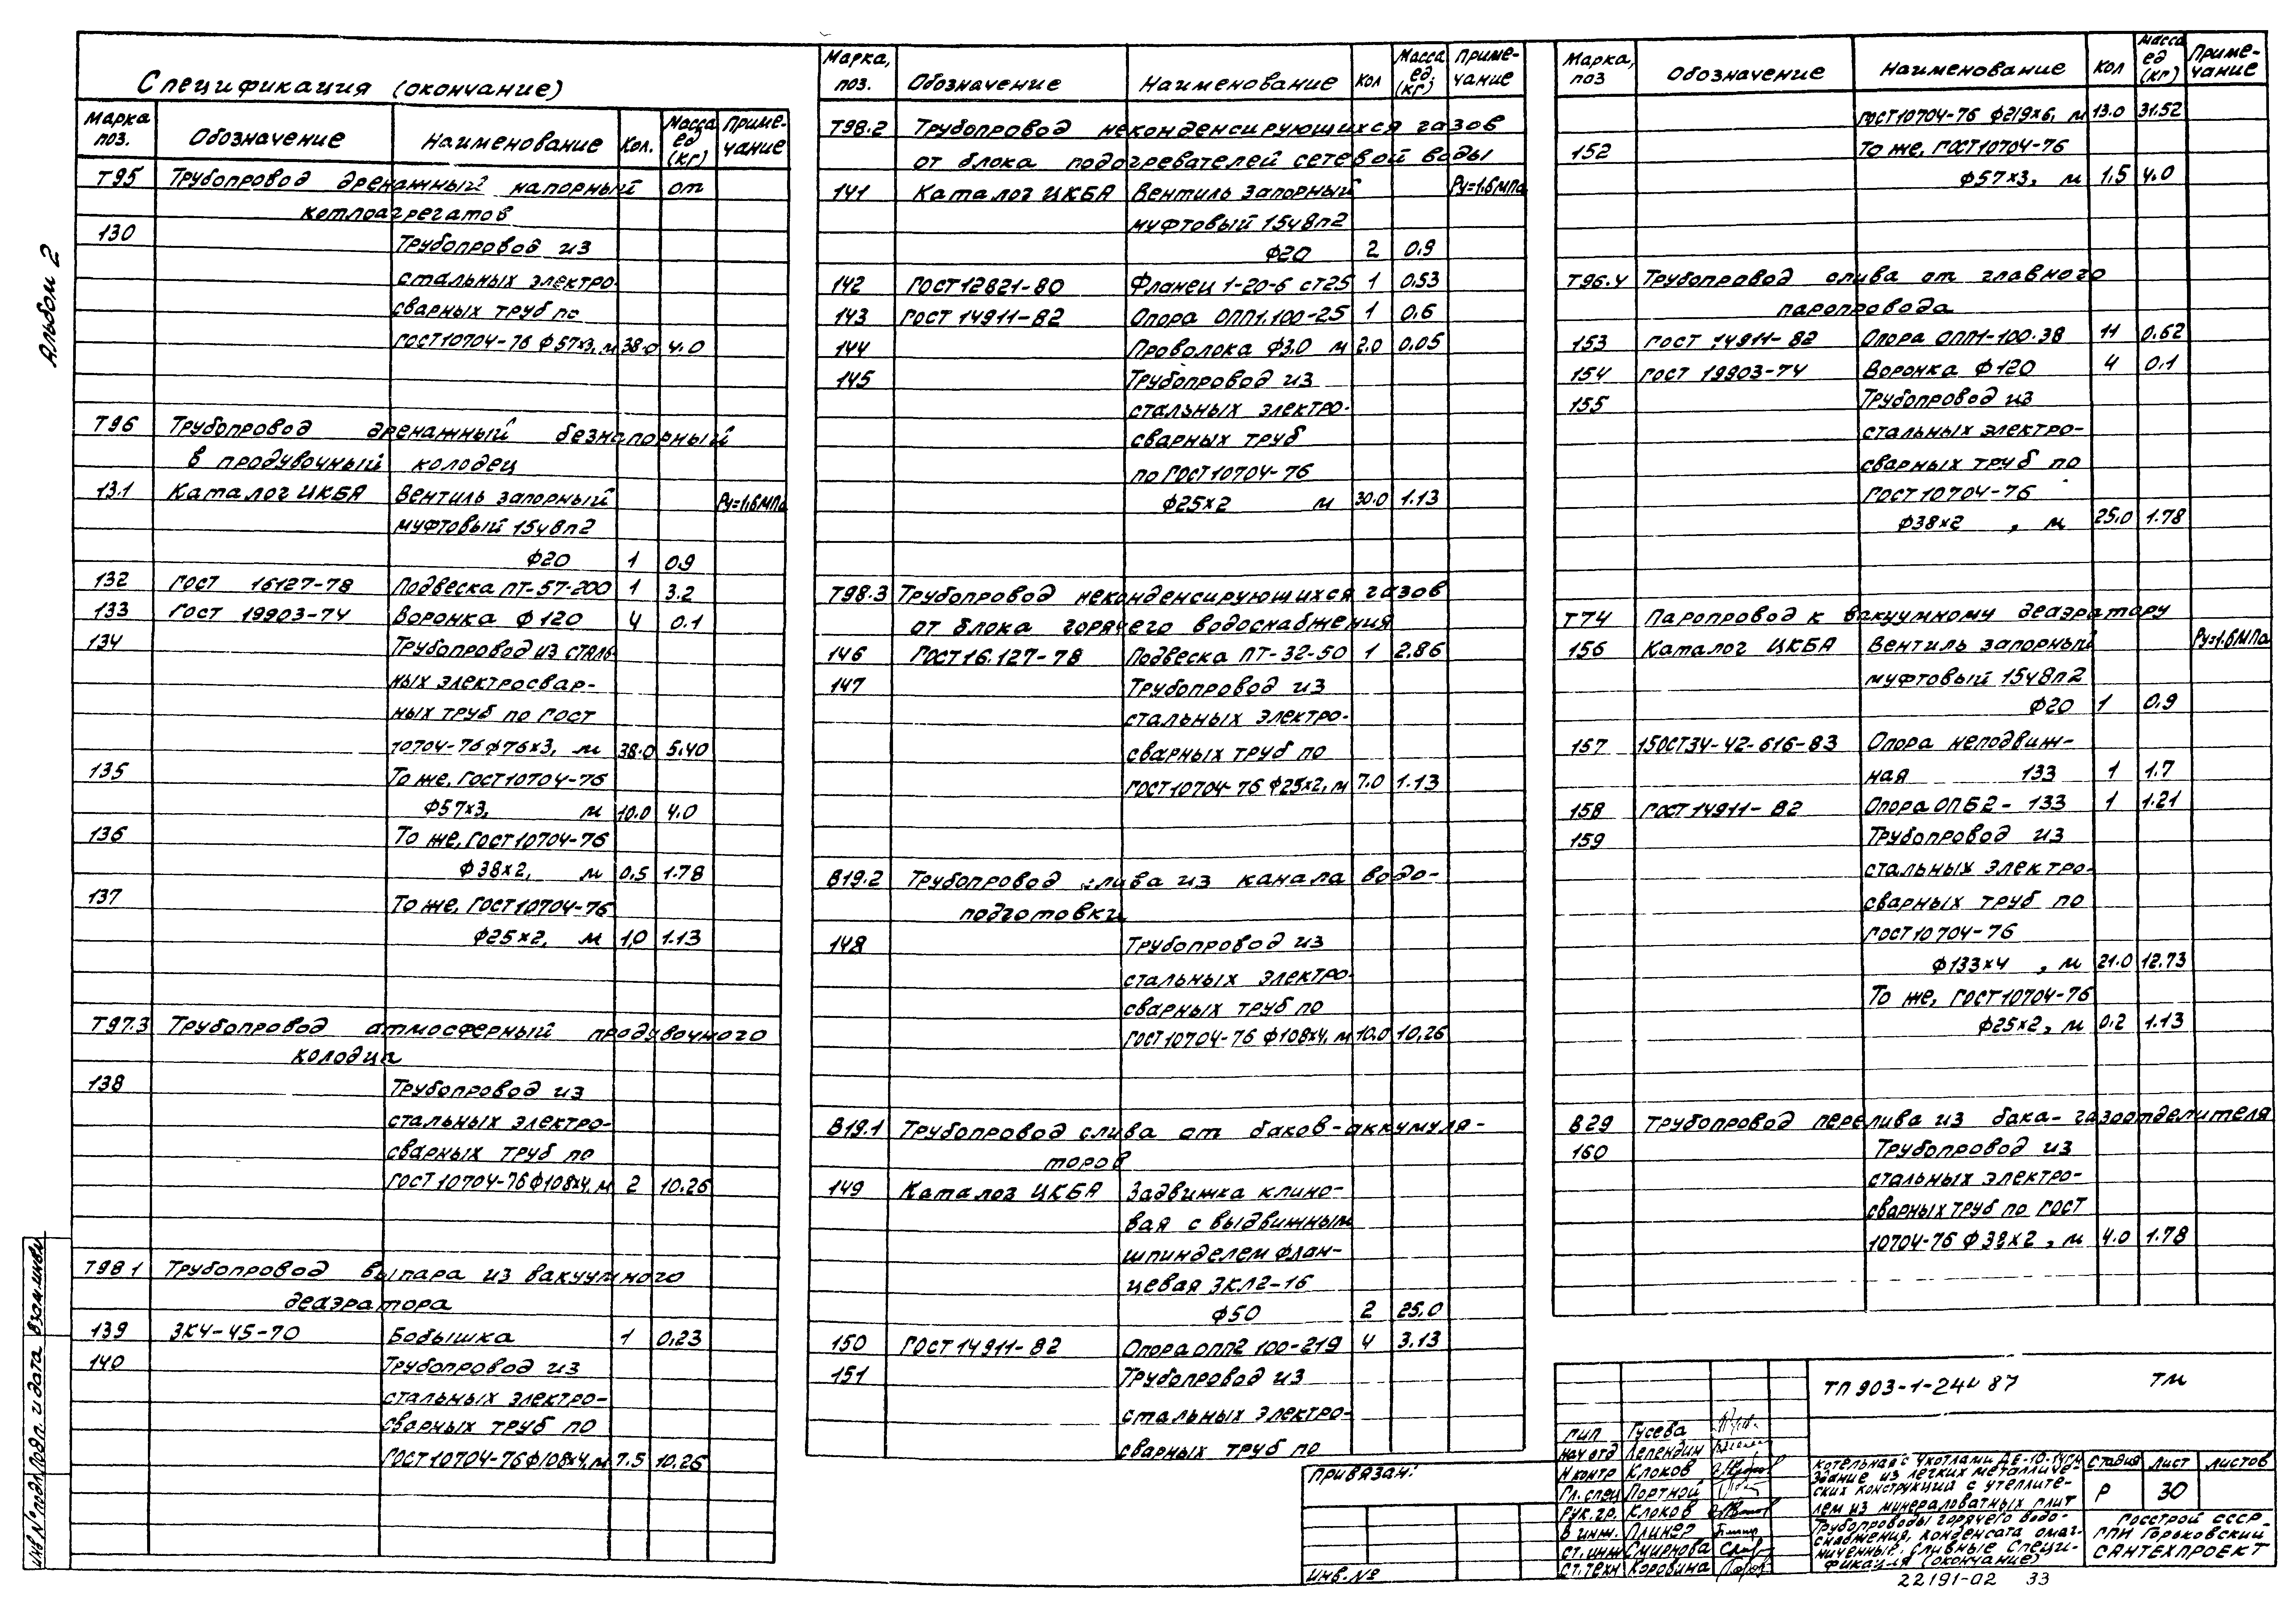 Альбом 2
Спецификация (окончание)
Марка поз. Обозначение Наименование Кол. Масса ед (кг) Приме-чание
Т95 Трубопровод дренажный напорный от
котлоагрегатов
130 Трубопровод из
стальных электро-
сварных труб по
ГОСТ10704-76 ф57х3, м 38.0 4.0
Т96 Трубопровод дренажный безнапорный
в продувочный колодец
131 Каталог ЦКБА Вентиль запорный Ру=1.6МПа
муфтовый 15ч8п2
ф20 1 0.9
132 ГОСТ 16127-78 Подвеска ПТ-57-200 1 3.2
133 ГОСТ 19903-74 Воронка ф120 4 0.1
134 Трубопровод из сталь
ных электросвар-
ных труб по ГОСТ
10704-76 ф76х3, м 38.0 5.40
135 То же, ГОСТ10704-76
ф57х3, м 10.0 4.0
136 То же, ГОСТ10704-76
ф38х2, м 0,5 1.78
137 То же, ГОСТ10704-76
ф25х2, м 1,0 1.13
Т97.3 Трубопровод атмосферный продувочного
колодца
138 Трубопровод из
стальных электро-
сварных труб по
ГОСТ10704-76ф108х4, м 2 10.26
Т98.1 Трубопровод выпара из вакуумного
деаэратора
139 ЗК4-45-70 Бобышка 1 0,23
140 Трубопровод из
стальных электро-
сварных труб по
ГОСТ10704-76ф108х4, м 7.5 10.26
Марка, поз. Обозначение Наименование Кол Масса ед. (кг) Приме-чание
Т98.2 Трубопровод неконденсирующихся газов
от блока подогревателей сетевой воды
141 Каталог ЦКБА Вентиль запорный Ру=1.6МПа
муфтовый 15ч8п2
ф20 2 0.9
142 ГОСТ12821-80 Фланец 1-20-6 ст25 1 0.53
143 ГОСТ 14911-82 Опора ОПП1.100-25 1 0,6
144 Проволока ф3.0 м 2.0 0.05
145 Трубопровод из
стальных электро-
сварных труб
по ГОСТ10704-76
ф25х2 м 30.0 1.13
Т98.3 Трубопровод неконденсирующихся газов
от блока горячего водоснабжения
146 ГОСТ16.127-78 Подвеска ПТ-32-50 1 2.86
147 Трубопровод из
стальных электро-
сварных труб по
ГОСТ10704-76 ф25х2, м 7.0 1.13
В19.2 Трубопровод слива из канала водо-
подготовки
148 Трубопровод из
стальных электро-
сварных труб по
ГОСТ10704-76 ф108х4, м 10.0 10,26
В19.1 Трубопровод слива от баков-аккумуля-
торов
149 Каталог ЦКБА Задвижка клино-
вая с выдвижным
шпинделем флан-
цевая ЗКЛ2-16
ф50 2 25.0
150 ГОСТ14911-82 Опора ОПП2 100-219 4 3.13
151 Трубопровод из
стальных электро-
сварных труб по
Марка, поз Обозначение Наименование Кол Масса ед (кг) Приме-чание
ГОСТ10704-76 ф219х6, м 13.0 31.52
152 То же, ГОСТ10704-76
ф57х3, м 1,5 4.0
Т96.4 Трубопровод слива от главного
паропровода
153 ГОСТ 14911-82 Опора ОПП1-100.38 11 0.62
154 ГОСТ 19903-74 Воронка ф120 4 0.1
155 Трубопровод из
стальных электро-
сварных труб по
ГОСТ10704-76
ф38х2 , м 25.0 1.78
Т74 Паропровод к вакуумному деаэратору
156 Каталог ЦКБА Вентиль запорный Ру=1.6МПа
муфтовый 15ч8п2
ф20 1 0.9
157 150СТ34-42-616-83 Опора неподвиж-
ная 133 1 1.7
158 ГОСТ14911-82 Опора ОПБ2-133 1 1.21
159 Трубопровод из
стальных электро-
сварных труб по
ГОСТ10704-76
ф133х4 , м 21.0 12.73
То же, ГОСТ10704-76
ф25х2, м 0.2 1.13
В29 Трубопровод перелива из бака-газоотделителя
160 Трубопровод из
стальных электро-
сварных труб по ГОСТ
10704-76 ф38х2, м 4.0 1.78
Инв № подл. Подп. и дата Взам.инв№
Привязан:
Инв.№
ТП 903-1-244 87 ТМ
ГИП Гусева
Нач отд Лепендин
Н.контр Клоков
Гл.спец Портной
Рук.гр. Клоков
В инж. Плинер
Ст.инж Смирнова
Ст.техн Коровина
Котельная с 4котлами ДЕ-10-14ГМ
Здание из легких металличе-
ских конструкций с утеплите-
лем из минераловатных плит
Стадия Лист Листов
Р 30
Трубопроводы горячего водо-
снабжения, конденсата омаг-
ниченные, сливные Специ-
фикация (окончание)
Госстрой СССР
ГПИ Горьковский
САНТЕХПРОЕКТ
22191-02 33